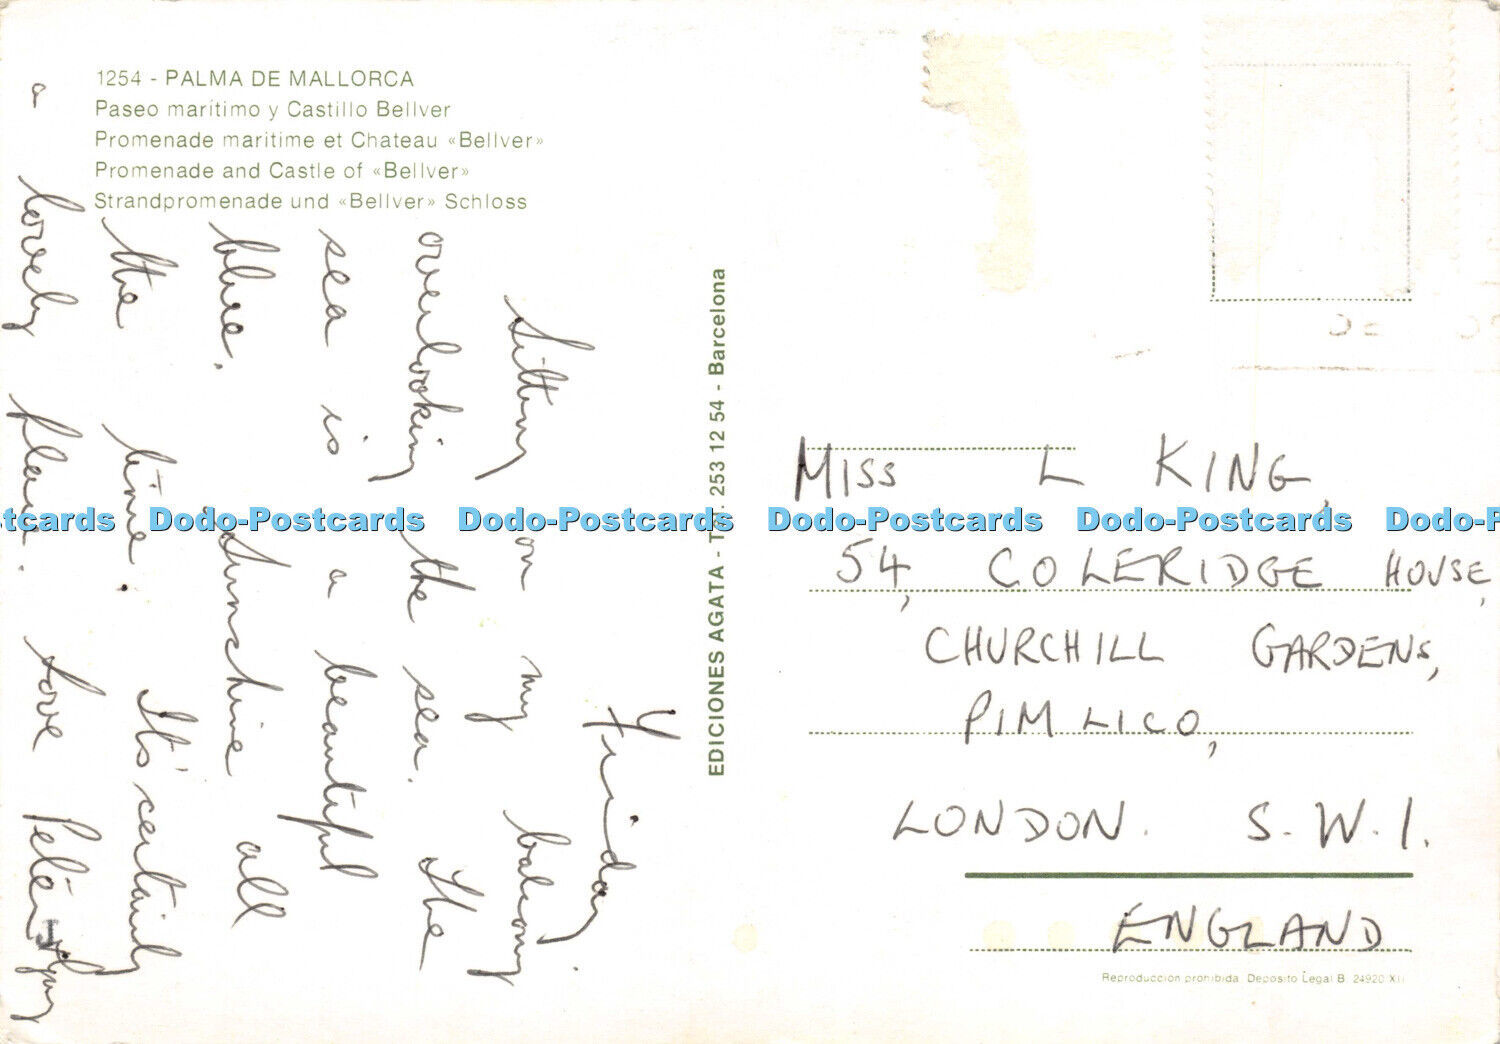 1254 - PALMA DE MALLORCA
Paseo marítimo y Castillo Bellver
Promenade maritime et Chateau «Bellver»
Promenade and Castle of «Bellver»
Strandpromenade und «Bellver» Schloss
Friday
Sitting on my balcony
overlooking the sea. The
sea is a beautiful
blue. Sunshine all
the time. It's certainly
a lovely place. Love Peter
EDICIONES AGATA - T. 253 12 54 - Barcelona
MISS L KING,
54, COLERIDGE HOUSE,
CHURCHILL GARDENS,
PIMLICO,
LONDON. S.W.1.
ENGLAND
Reproduccion prohibida. Deposito Legal B. 24920 XII
stcards Dodo-Postcards Dodo-Postcards Dodo-Postcards Dodo-Postcards Dodo-P